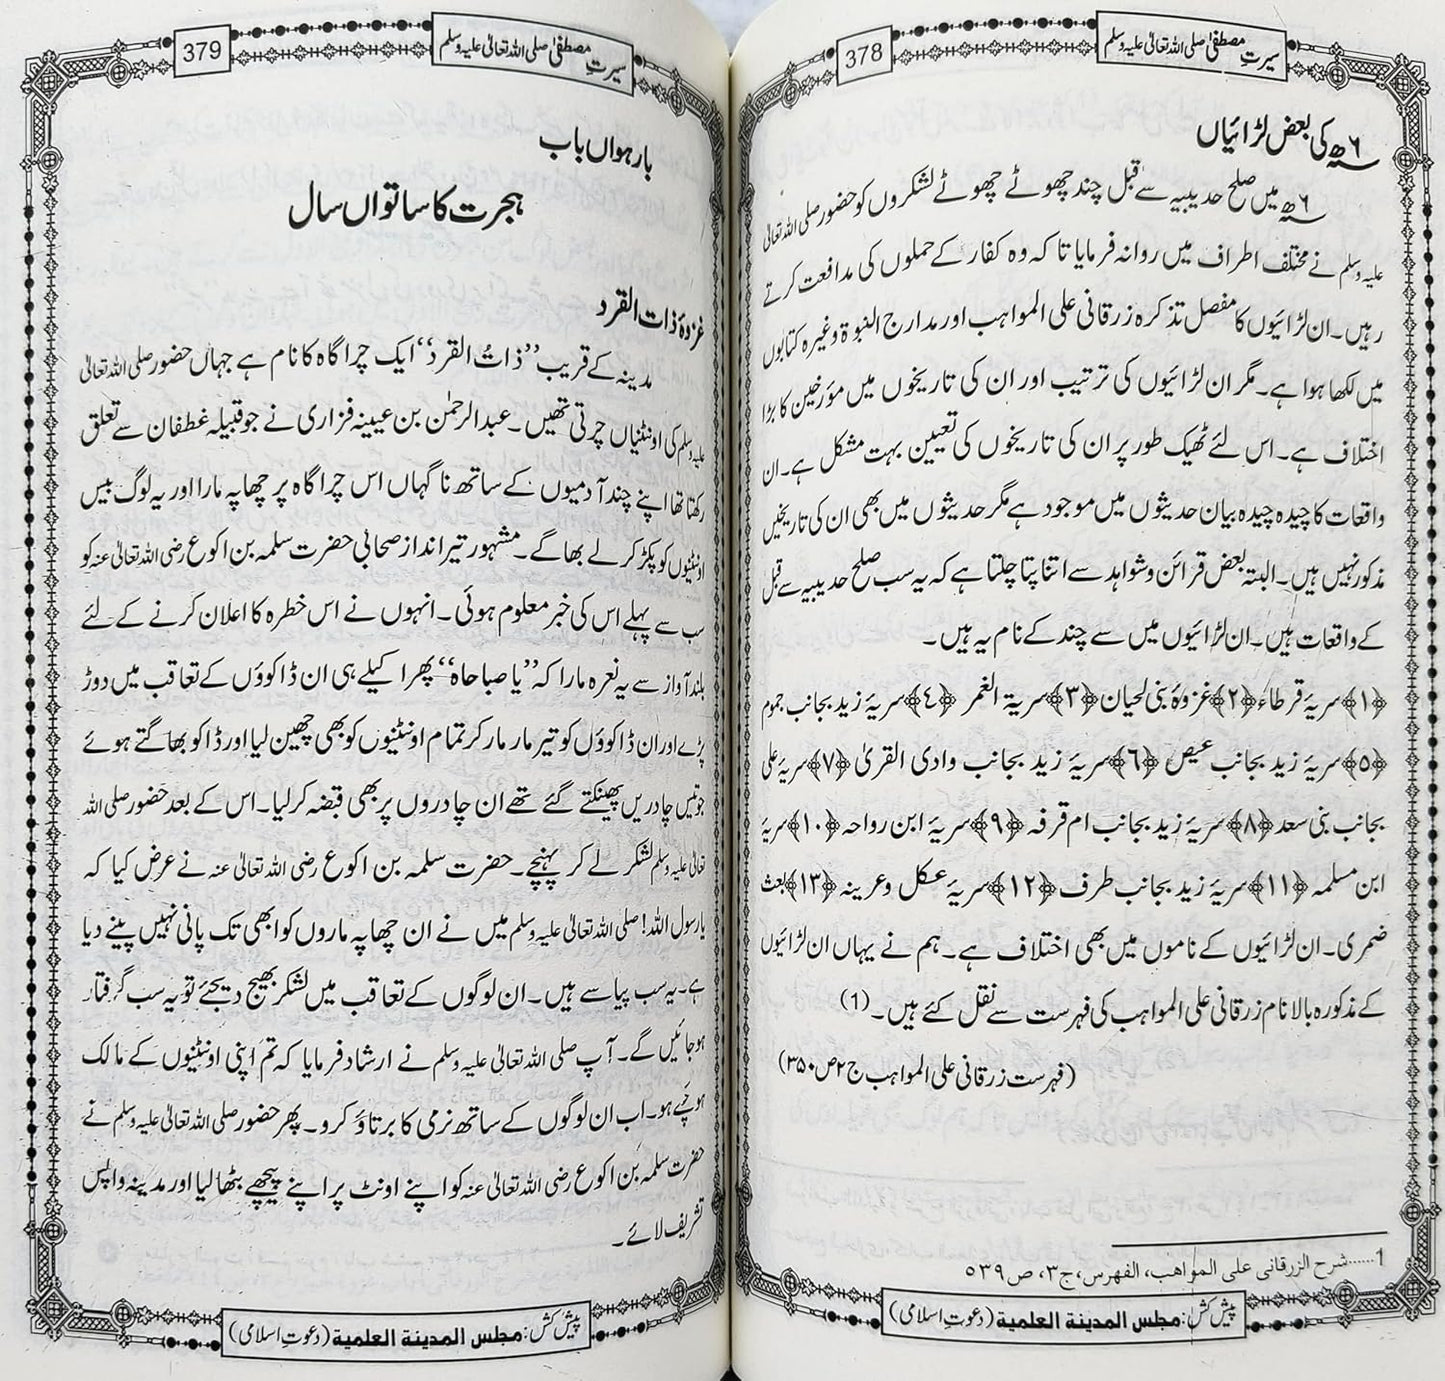 سیرتِ مصطفیٰ صلی اللہ تعالیٰ علیہ وسلم
378
۶ھ کی بعض لڑائیاں
۶ھ میں صلح حدیبیہ سے قبل چند چھوٹے چھوٹے لشکروں کو حضور صلی اللہ تعالیٰ
علیہ وسلم نے مختلف اطراف میں روانہ فرمایا تا کہ وہ کفار کے حملوں کی مدافعت کرتے
رہیں۔ ان لڑائیوں کا مفصل تذکرہ زرقانی علی المواہب اور مدارج النبوۃ وغیرہ کتابوں
میں لکھا ہوا ہے۔ مگر ان لڑائیوں کی ترتیب اور ان کی تاریخوں میں مؤرخین کا بڑا
اختلاف ہے۔ اس لئے ٹھیک طور پر ان کی تاریخوں کی تعیین بہت مشکل ہے۔ ان
واقعات کا چیدہ چیدہ بیان حدیثوں میں موجود ہے مگر حدیثوں میں بھی ان کی تاریخیں
مذکور نہیں ہیں۔ البتہ بعض قرائن و شواہد سے اتنا پتا چلتا ہے کہ یہ سب صلح حدیبیہ سے قبل
کے واقعات ہیں۔ ان لڑائیوں میں سے چند کے نام یہ ہیں۔
﴿۱﴾ سریۂ قرطاء ﴿۲﴾ غزوۂ بنی لحیان ﴿۳﴾ سریۃ الغمر ﴿۴﴾ سریۂ زید بجانب جموم
﴿۵﴾ سریۂ زید بجانب عیص ﴿۶﴾ سریۂ زید بجانب وادی القریٰ ﴿۷﴾ سریۂ علی
بجانب بنی سعد ﴿۸﴾ سریۂ زید بجانب ام قرفہ ﴿۹﴾ سریۂ ابن رواحہ ﴿۱۰﴾ سریۂ
ابن مسلمہ ﴿۱۱﴾ سریۂ زید بجانب طرف ﴿۱۲﴾ سریۂ عکل و عرینہ ﴿۱۳﴾ بعث
ضمری۔ ان لڑائیوں کے ناموں میں بھی اختلاف ہے۔ ہم نے یہاں ان لڑائیوں
کے مذکورہ بالا نام زرقانی علی المواہب کی فہرست سے نقل کئے ہیں۔ (1)
(فہرست زرقانی علی المواہب ج۲ ص۳۵۰)
1......شرح الزرقانی علی المواھب، الفھرس، ج۳، ص۵۳۹
پیش کش: مجلس المدینۃ العلمیۃ (دعوتِ اسلامی)
سیرتِ مصطفیٰ صلی اللہ تعالیٰ علیہ وسلم
379
بارہواں باب
ہجرت کا ساتواں سال
غزوۂ ذات القرد
مدینہ کے قریب ”ذاتُ القرد“ ایک چراگاہ کا نام ہے جہاں حضور صلی اللہ تعالیٰ
علیہ وسلم کی اونٹنیاں چرتی تھیں۔ عبدالرحمٰن بن عیینہ فزاری نے جو قبیلہ غطفان سے تعلق
رکھتا تھا اپنے چند آدمیوں کے ساتھ ناگہاں اس چراگاہ پر چھاپہ مارا اور یہ لوگ بیس
اونٹنیوں کو پکڑ کر لے بھاگے۔ مشہور تیر انداز صحابی حضرت سلمہ بن اکوع رضی اللہ تعالیٰ عنہ کو
سب سے پہلے اس کی خبر معلوم ہوئی۔ انہوں نے اس خطرہ کا اعلان کرنے کے لئے
بلند آواز سے یہ نعرہ مارا کہ ”یا صباحاہ“ پھر اکیلے ہی ان ڈاکوؤں کے تعاقب میں دوڑ
پڑے اور ان ڈاکوؤں کو تیر مار مار کر تمام اونٹنیوں کو بھی چھین لیا اور ڈاکو بھاگتے ہوئے
جو تیس چادریں پھینکتے گئے تھے ان چادروں پر بھی قبضہ کر لیا۔ اس کے بعد حضور صلی اللہ
تعالیٰ علیہ وسلم لشکر لے کر پہنچے۔ حضرت سلمہ بن اکوع رضی اللہ تعالیٰ عنہ نے عرض کیا کہ
یارسول اللہ! صلی اللہ تعالیٰ علیہ وسلم میں نے ان چھاپہ ماروں کو ابھی تک پانی نہیں پینے دیا
ہے۔ یہ سب پیاسے ہیں۔ ان لوگوں کے تعاقب میں لشکر بھیج دیجئے تو یہ سب گرفتار
ہو جائیں گے۔ آپ صلی اللہ تعالیٰ علیہ وسلم نے ارشاد فرمایا کہ تم اپنی اونٹنیوں کے مالک
ہو چکے ہو۔ اب ان لوگوں کے ساتھ نرمی کا برتاؤ کرو۔ پھر حضور صلی اللہ تعالیٰ علیہ وسلم نے
حضرت سلمہ بن اکوع رضی اللہ تعالیٰ عنہ کو اپنے اونٹ پر اپنے پیچھے بٹھا لیا اور مدینہ واپس
تشریف لائے۔
پیش کش: مجلس المدینۃ العلمیۃ (دعوتِ اسلامی)